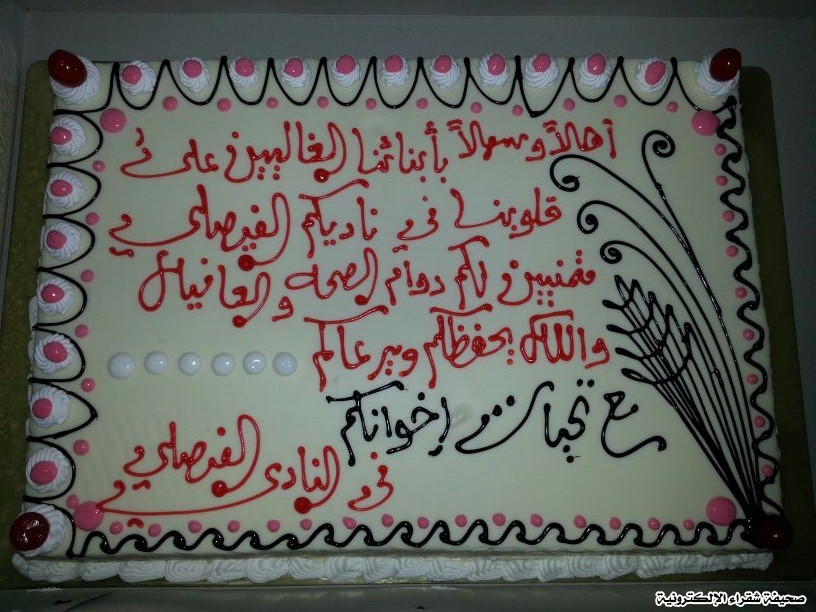 أهلاً وسهلاً بأبنائنا الغاليين على
قلوبنا في ناديكم الفيصلي
متمنيين لكم دوام الصحه والعافيه
والله يحفظكم ويرعاكم
مع تحيات إخوانكم
في النادي الفيصلي
صحيفة شقراء الإلكترونية